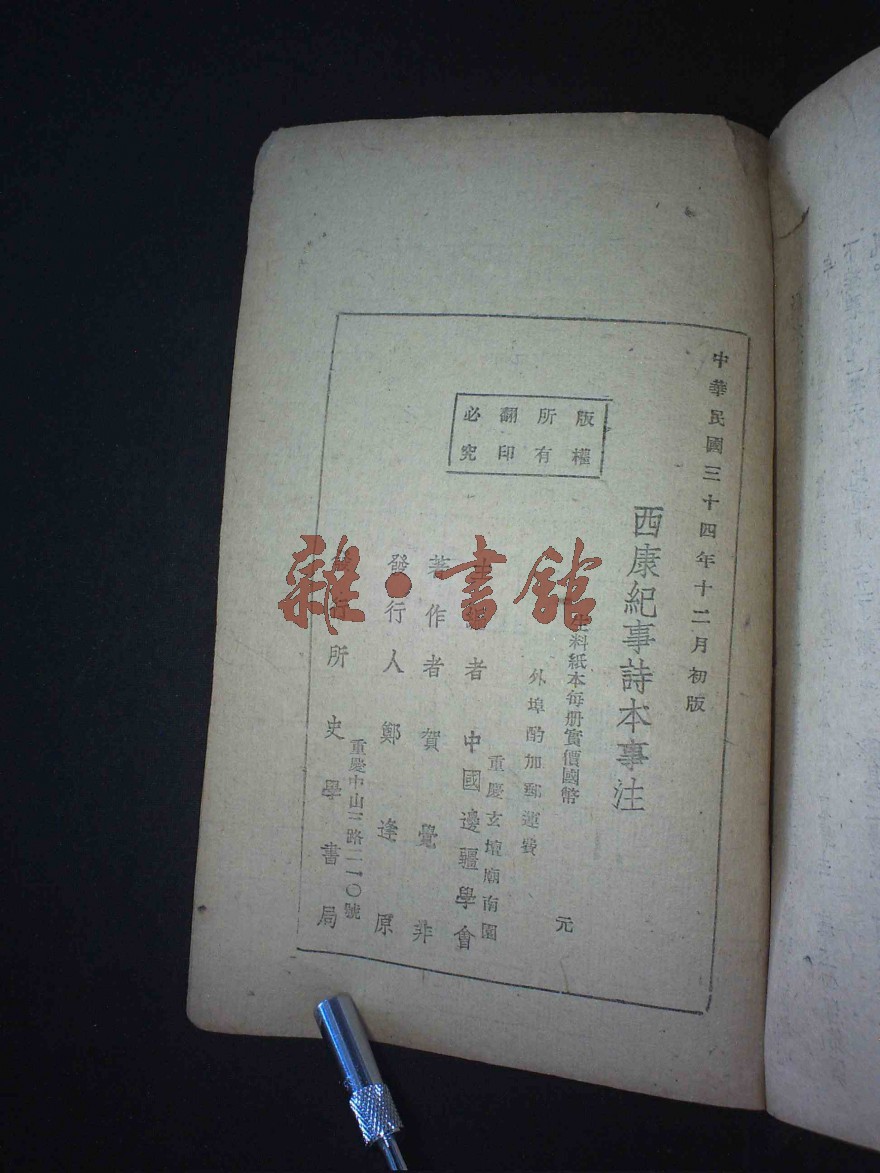 中華民國三十四年十二月初版
西康紀事詩本事注
版權
所有
翻印
必究
生料紙本每册實價國幣 元
外埠酌加郵運費
重慶玄壇廟南園
主編者 中國邊疆學會
著作者 賀覺非
發行人 鄭逢原
重慶中山三路二一〇號
發行所 史學書局
雜·書館